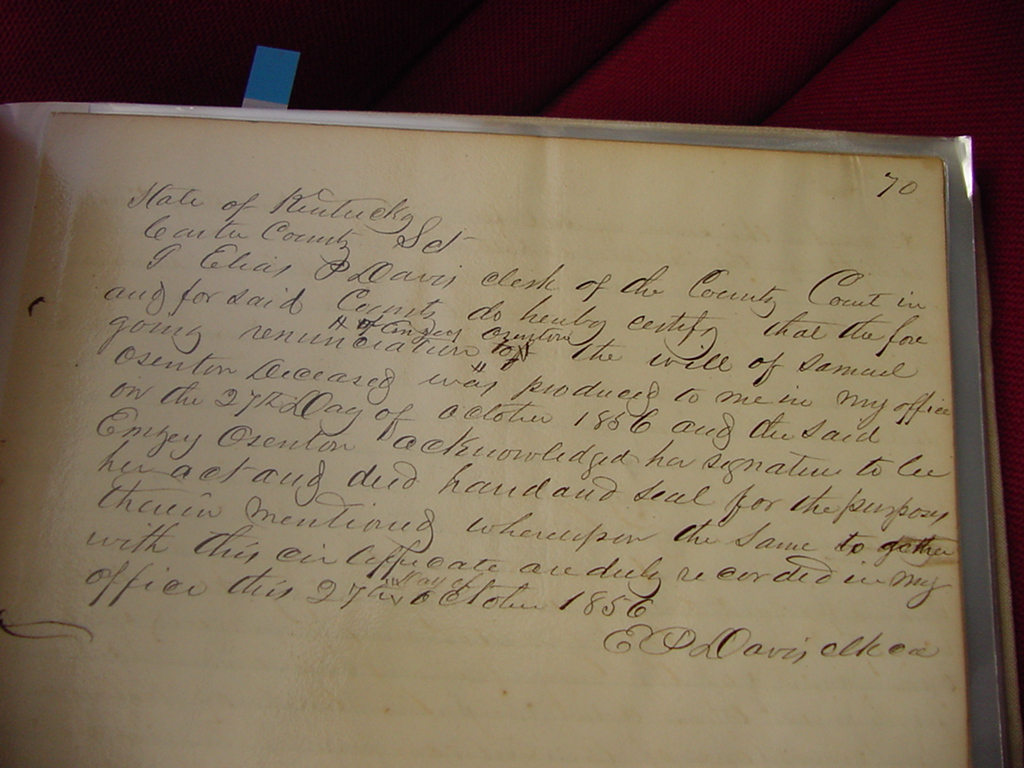 70
State of Kentucky
Carter County Sct
I Elias P Davis clerk of the County Court in
and for said County do hereby certify that the fore
going renunciation to the will of Samuel
Osenton deceased was produced to me in my office
on the 27th Day of october 1856 and the said
Osenton acknowledged her signature to be
her act and deed hand and seal for the purposes
therein mentioned whereupon the same to gather
with this certificate are duly recorded in my
office this 27th day of October 1856
E P Davis clk